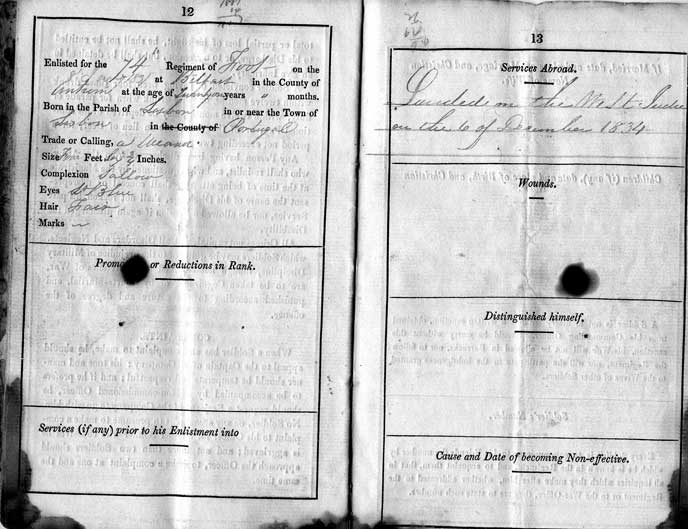 12
Enlisted for the 74th Regiment of Foot on the
at Belfast in the County of
Antrim at the age of years months.
Born in the Parish of Lisbon in or near the Town of
Lisbon in the County of Portugal
Trade or Calling, a Weaver
Size Five Feet Inches.
Complexion Sallow
Eyes
Hair Fair
Marks
or Reductions in Rank.
Services (if any) prior to his Enlistment into
13
Services Abroad.
Landed in the West Indies
on the 6 of December 1834
Wounds.
Distinguished himself.
Cause and Date of becoming Non-effective.